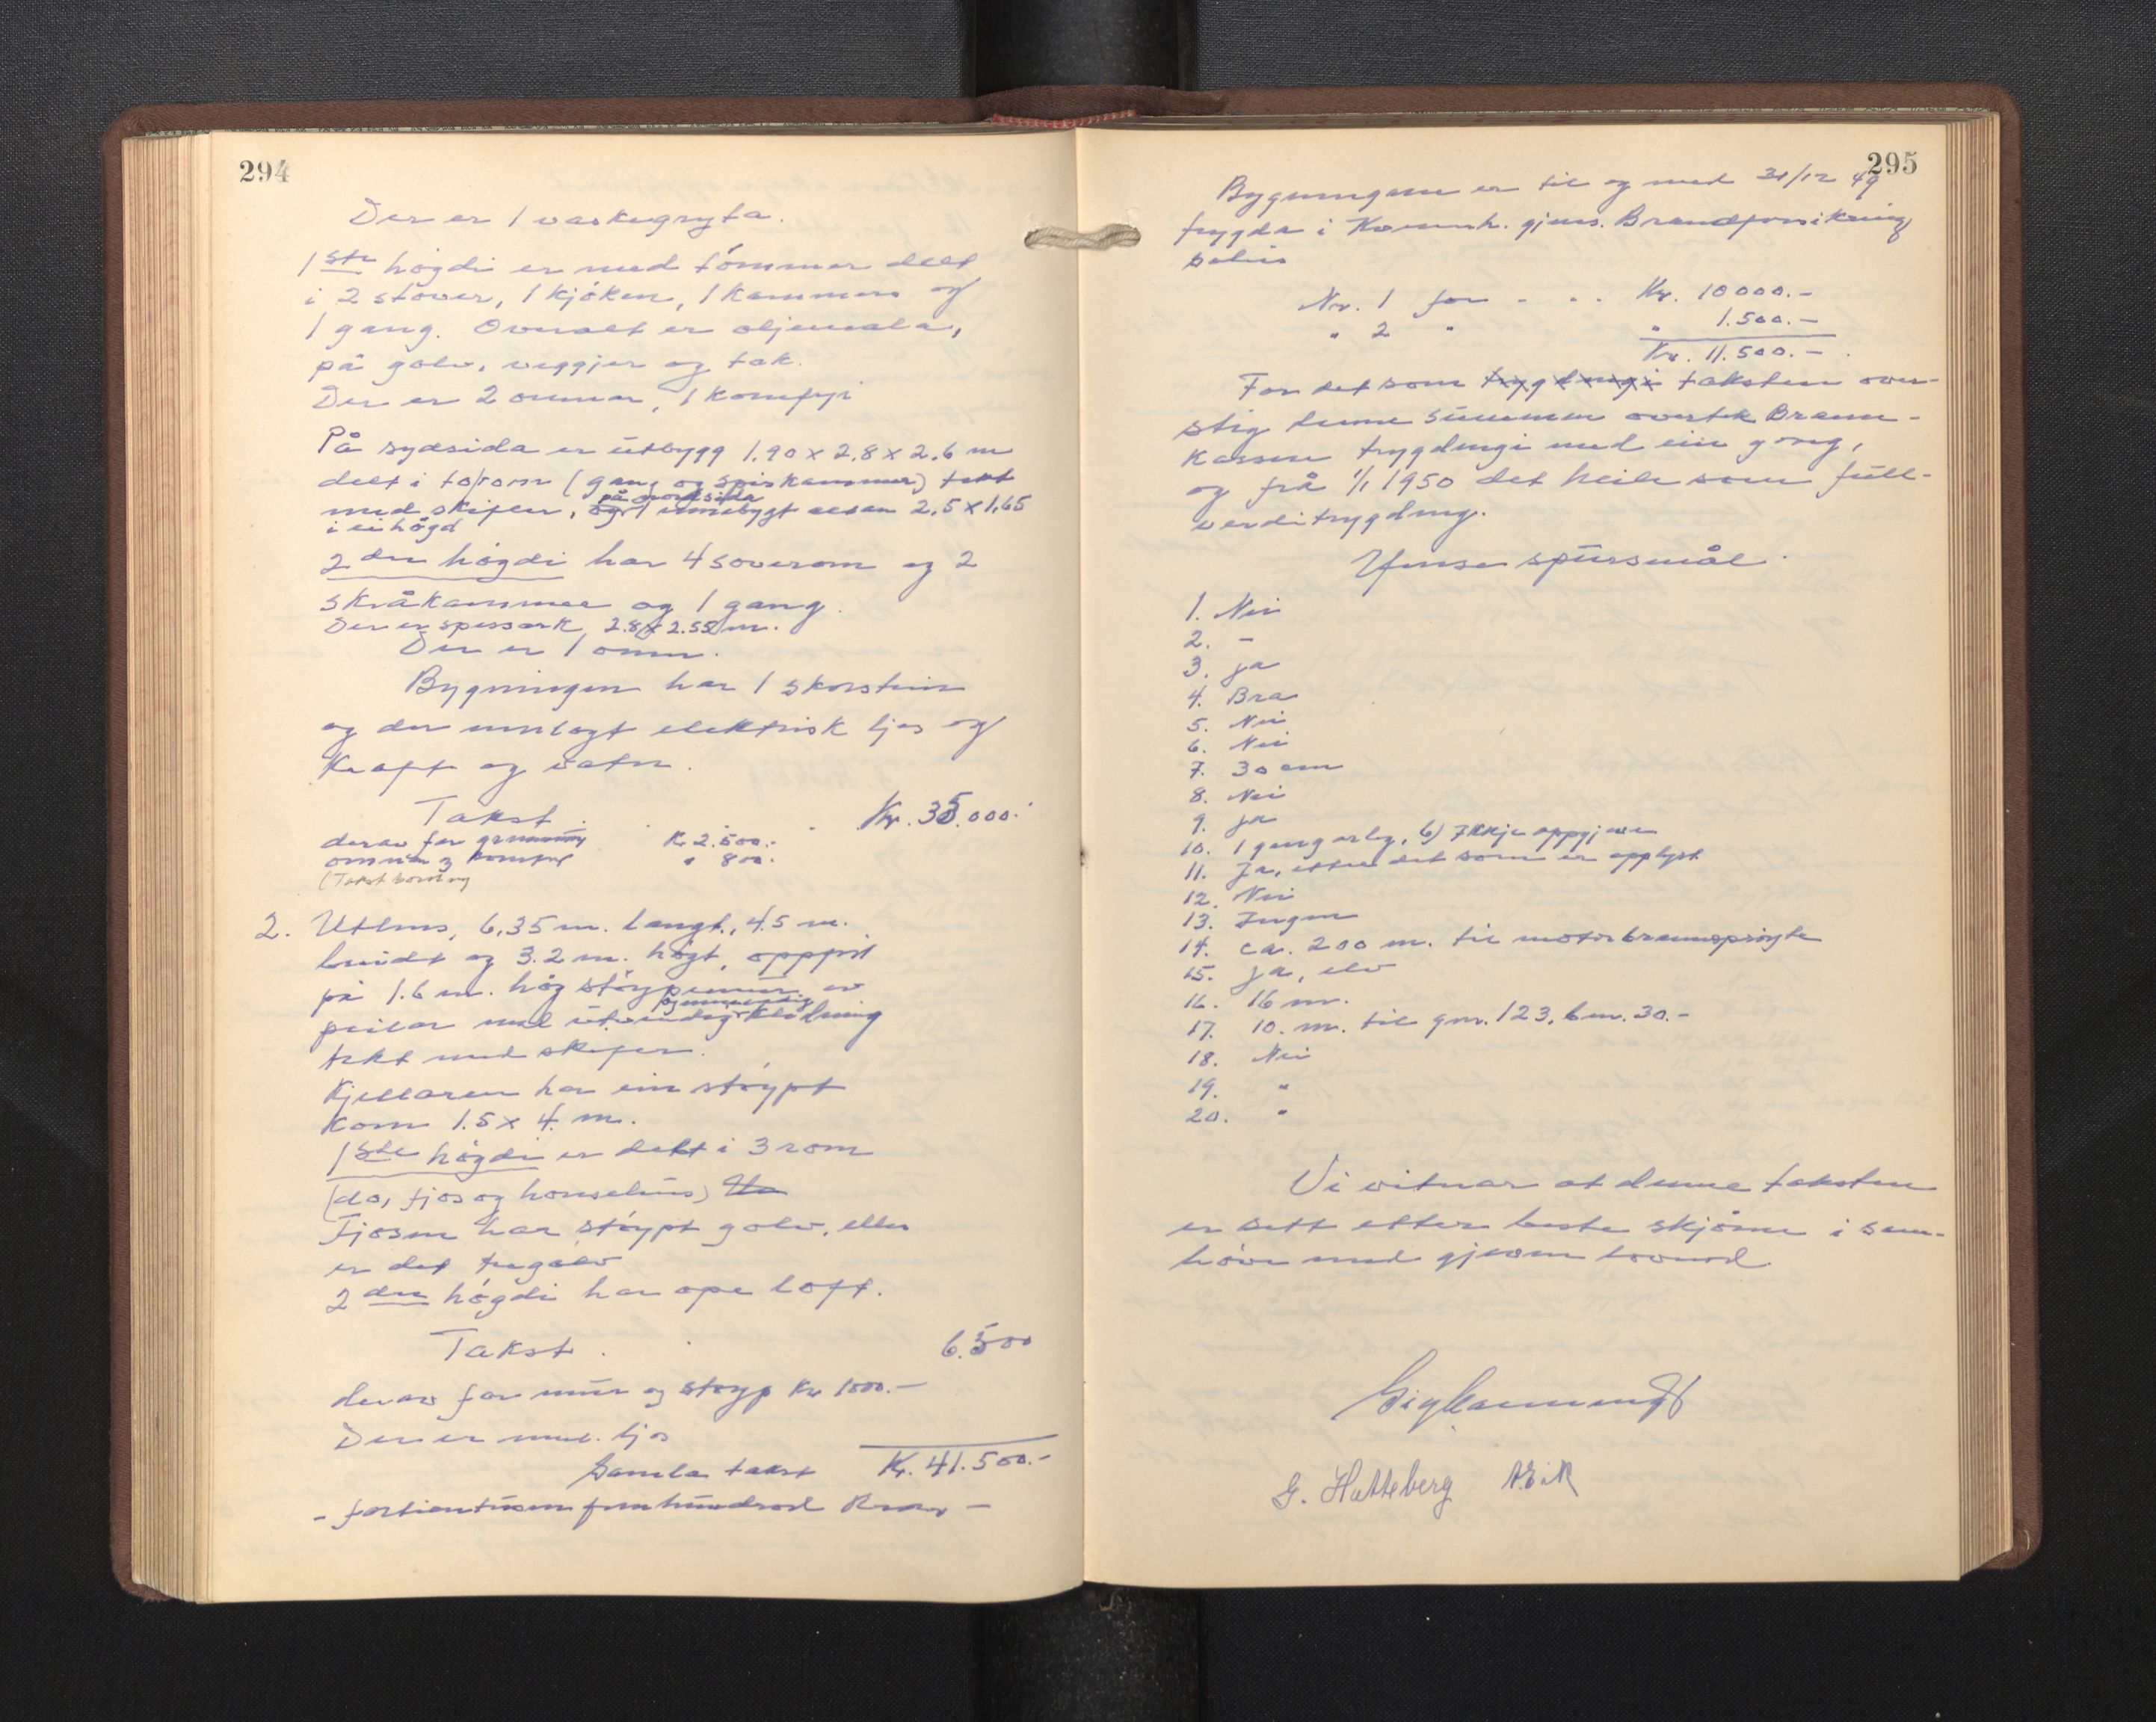 294
Der er 1 vaskegryta.
1ste högdi er med tömmer delt
i 2 stover, 1 kjöken, 1 kammers og
1 gang. Overalt er oljemala,
på golv, veggjer og tak.
Der er 2 omnar, 1 komfyr
På sydsida er utbygg 1.90 x 2.8 x 2.6 m
delt i to rom (gang og spiskammer) tekt
på nordsida
med skifer, og 1 innebygt altan 2.5 x 1.65
i ei högd
2dre högdi har 4 soverom og 2
skråkammer og 1 gang.
Der er spissark 2.8 x 2.55 m.
Der er 1 omn.
Bygningen har 1 skorstein
og der innlagt elektrisk ljos og
Kraft og vatn.
Takst. Kr. 35.000.-
derav for grunnmur Kr. 2.500.-
omnar og komfyr " 800.-
(Takst
2. Uthus, 6,35 m. langt, 4.5 m.
breidt og 3.2 m. högt, oppfört
på 1.6 m. hög stöypemur, av
peilar med utvendig kledning
tekt med skifer.
Kjellaren har ein stöypt
kom 1.5 x 4. m.
1ste högdi er delt i 3 rom
(do, fjos og honsehus)
Fjosen har stöypt golv, elles
er det tregolv
2dre högdi har ope loft.
Takst. 6.500
derav for mur og stöyp Kr 1000.-
Der er innl. ljos
Samla takst Kr. 41.500.-
- fortientusen femhundrad Kroner -
295
Bygningane er til og med 31/12 49
trygda i Kvinnh. gjens. Brandforsikring
selsk.
Nr. 1 for - .. Kr. 10000.-
" 2 " " 1.500.-
Kr. 11.500.-
For det som trygdingi taksten over-
stig denne summen overtek Brann-
kassen trygdingi med ein gong,
og frå 1/1 1950 det heile som full-
verditrygding.
Ymse spursmål.
1. Nei
2. -
3. Ja
4. Bra
5. Nei
6. Nei
7. 30 cm
8. Nei
9. Ja
10. 1 gang årleg, b) Ikkje oppgjeve
11. Ja, etter det som er opplyst
12. Nei
13. Ingen
14. ca. 200 m. til motorbrannspröyte
15. Ja, elv
16. 16 m.
17. 10. m. til gnr. 123, bnr. 30.-
18. Nei
19. "
20. "
Vi vitnar at denne taksten
er sett etter beste skjönn i sam-
höve med gjevne lovord.
G. Hatteberg